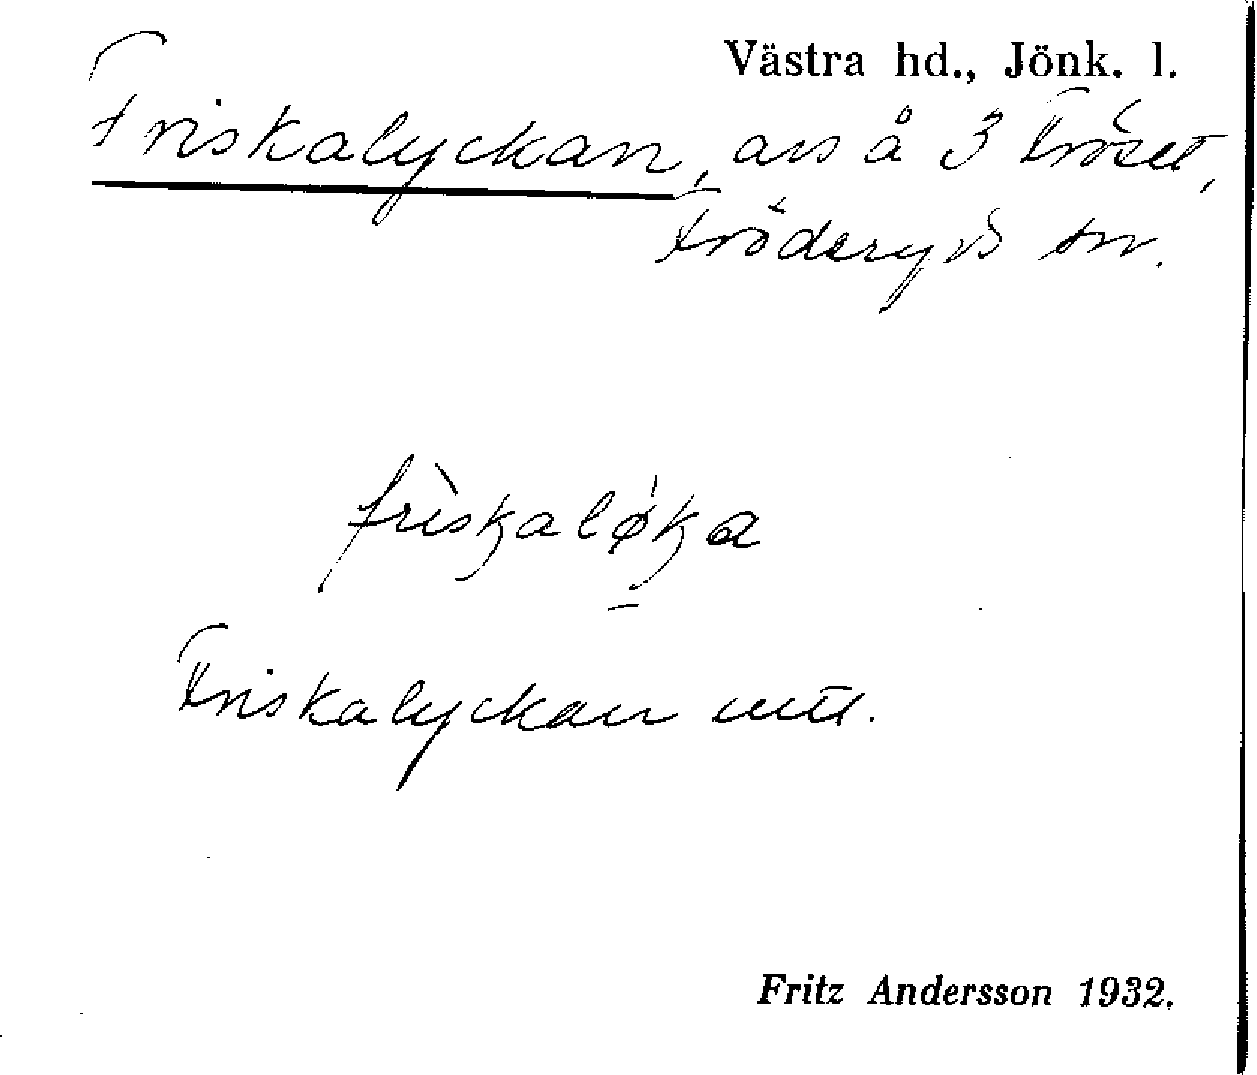 Västra hd., Jönk. l.
Friskalyckan, avs å 3 Fröset,
Fröderyds sn.
frìskaløka
Friskalyckan utt.
Fritz Andersson 1932.